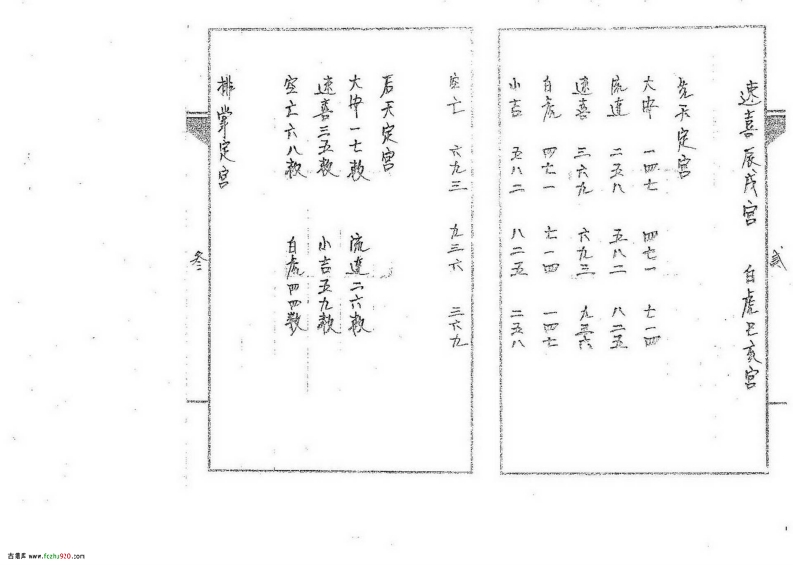 速喜辰戌宫 白虎巳亥宫
先天定宫
大安 一四七 四七一 七一四
流连 二五八 五八二 八二五
速喜 三六九 六九三 九三六
白虎 四七一 七一四 一四七
小吉 五八二 八二五 二五八
贰
空亡 六九三 九三六 三六九
后天定宫
大安一七数 流连二六数
速喜三五数 小吉五九数
空亡六八数 白虎四四数
排掌定宫
叁
古籍库 www.fczhu920.com